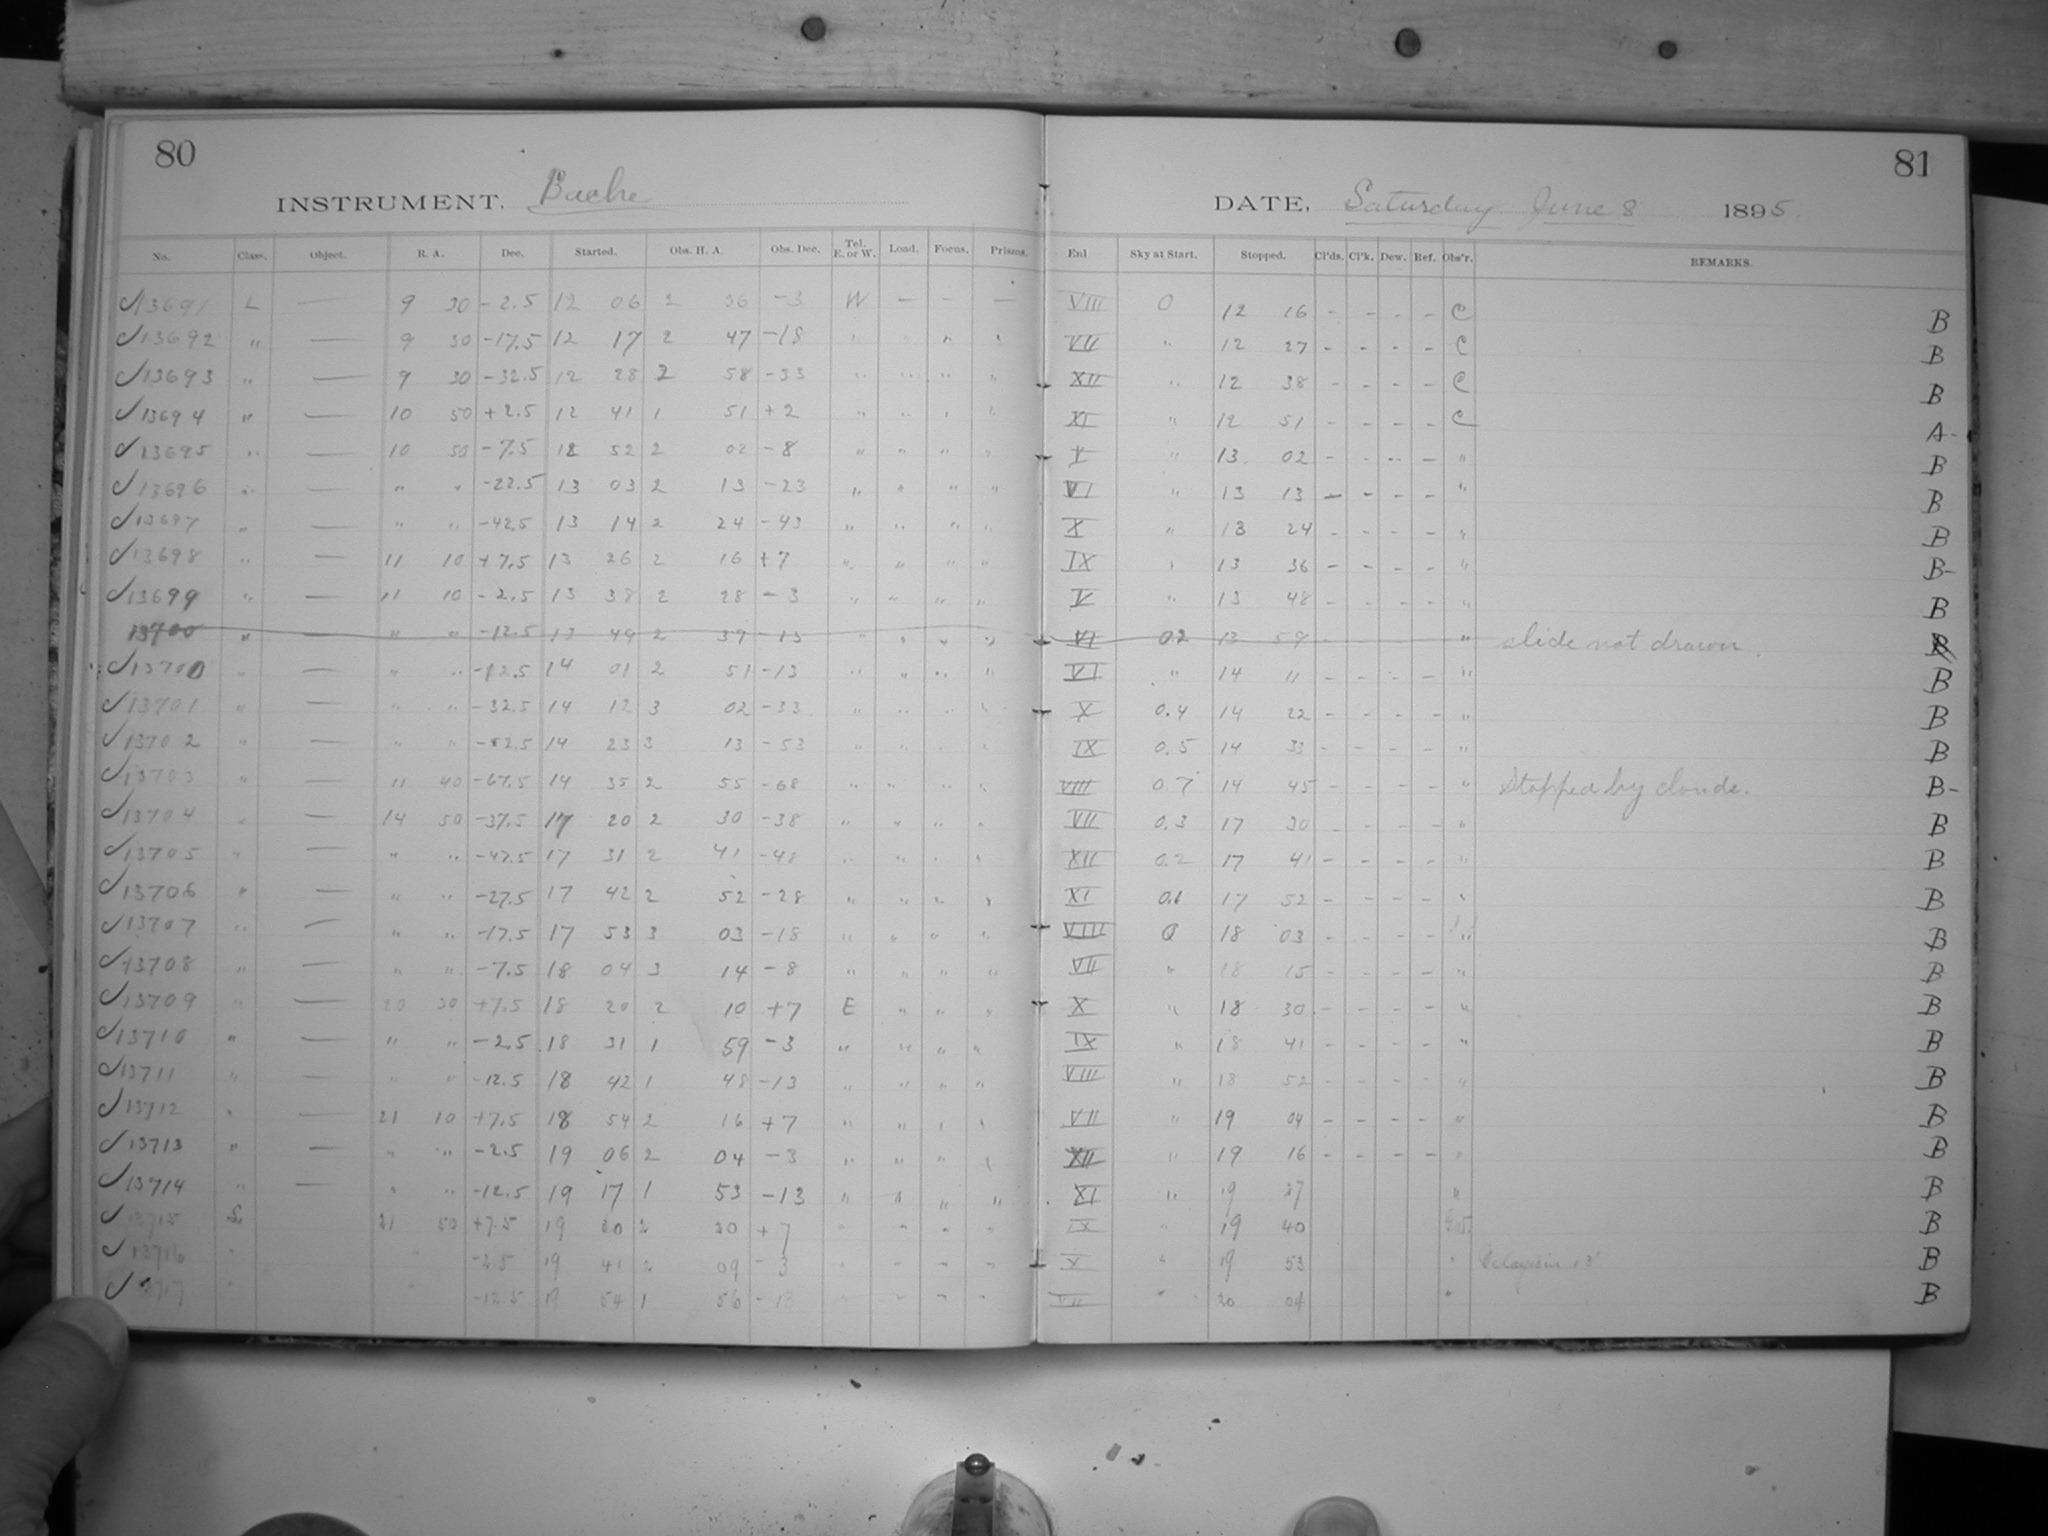 80
INSTRUMENT. Bache
No. Class. Object. R. A. Dec. Started. Obs. H. A. Obs. Dec. Tel. E. or W. Load. Focus. Prisms.
81
DATE, Saturday June 8 1895.
Enl Sky at Start. Stopped. Cl'ds. Cl'k. Dew. Ref. Obs'r. REMARKS.
✓13691 L — 9 30 -2.5 12 06 2 36 -3 W — — — VIII 0 12 16 - - - - C B
✓13692 " — 9 30 -17.5 12 17 2 47 -18 " " " " VII " 12 27 - - - - C B
✓13693 " — 9 30 -32.5 12 28 2 58 -33 " " " " XII " 12 38 - - - - C B
✓13694 " — 10 50 +2.5 12 41 1 51 +2 " " " " XI " 12 51 - - - - C A-
✓13695 " — 10 50 -7.5 12 52 2 02 -8 " " " " V " 13 02 - - - - " B
✓13696 " — " " -22.5 13 03 2 13 -23 " " " " VI " 13 13 - - - - " B
✓13697 " — " " -42.5 13 14 2 24 -43 " " " " X " 13 24 - - - - " B
✓13698 " — 11 10 +7.5 13 26 2 16 +7 " " " " IX " 13 36 - - - - " B-
✓13699 " — 11 10 -2.5 13 38 2 28 -3 " " " " V " 13 48 - - - - " B
13700 " — " " -12.5 13 49 2 39 -13 " " " " VI 0.2 13 59 - - - - " slide not drawn. B
✓13700 " — " " -12.5 14 01 2 51 -13 " " " " VI " 14 11 - - - - " B
✓13701 " — " " -32.5 14 12 3 02 -33 " " " " X 0.4 14 22 - - - - " B
✓13702 " — " " -52.5 14 23 3 13 -53 " " " " IX 0.5 14 33 - - - - " B
✓13703 " — 11 40 -67.5 14 35 2 55 -68 " " " " VIII 0.7 14 45 - - - - " Stopped by clouds. B-
✓13704 " — 14 50 -37.5 17 20 2 30 -38 " " " " VII 0.3 17 30 - - - - " B
✓13705 " — " " -47.5 17 31 2 41 -48 " " " " XII 0.2 17 41 - - - - " B
✓13706 " — " " -27.5 17 42 2 52 -28 " " " " XI 0.1 17 52 - - - - " B
✓13707 " — " " -17.5 17 53 3 03 -18 " " " " VIII 0 18 03 - - - - " B
✓13708 " — " " -7.5 18 04 3 14 -8 " " " " VII " 18 15 - - - - " B
✓13709 " — 20 30 +7.5 18 20 2 10 +7 E " " " X " 18 30 - - - - " B
✓13710 " — " " -2.5 18 31 1 59 -3 " " " " IX " 18 41 - - - - " B
✓13711 " — " " -12.5 18 42 1 48 -13 " " " " VIII " 18 52 - - - - " B
✓13712 " — 21 10 +7.5 18 54 2 16 +7 " " " " VII " 19 04 - - - - " B
✓13713 " — " " -2.5 19 06 2 04 -3 " " " " XII " 19 16 - - - - " B
✓13714 " — " " -12.5 19 17 1 53 -13 " " " " XI " 19 27 " B
✓13715 21 50 +7.5 19 20 +7 " " " " IX " 19 40 B
✓13716 " " -2.5 19 41 2 09 -3 " " " " X " 19 53 " B
✓13717 " " -12.5 19 54 1 56 -13 " " " " VII " 20 04 " B